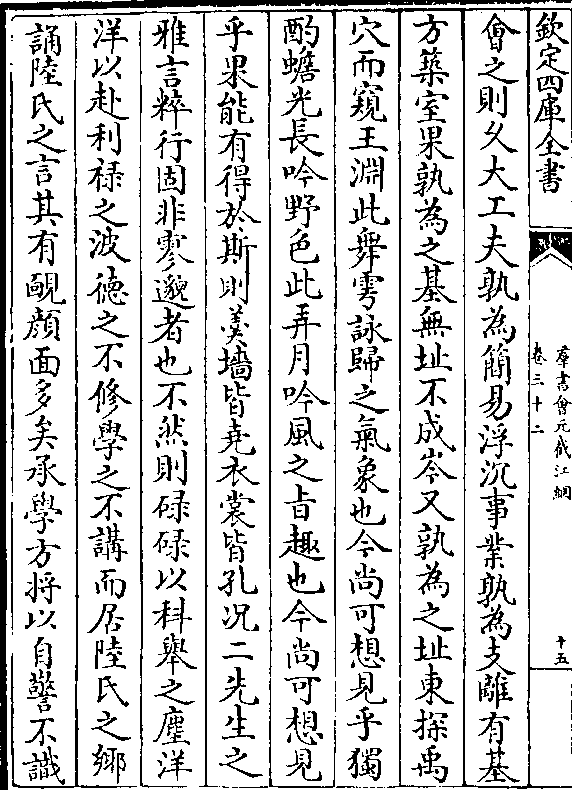 欽定四庫全書
羣書會元截江綱
卷三十二
十五
會之則乆大工夫孰為簡易浮沉事業孰為支離有基
方築室果孰為之基無址不成岑又孰為之址東探禹
穴而窺玉淵此舞雩詠歸之氣象也今尚可想見乎獨
酌蟾光長吟野色此弄月吟風之㫖趣也今尚可想見
乎果能有得於斯則羮墻皆尭衣裳皆孔况二先生之
雅言粹行固非寥邈者也不然則碌碌以科舉之塵洋
洋以赴利禄之波德之不修學之不講而居陸氏之鄉
誦陸氏之言其有靦顔面多矣承學方將以自警不識